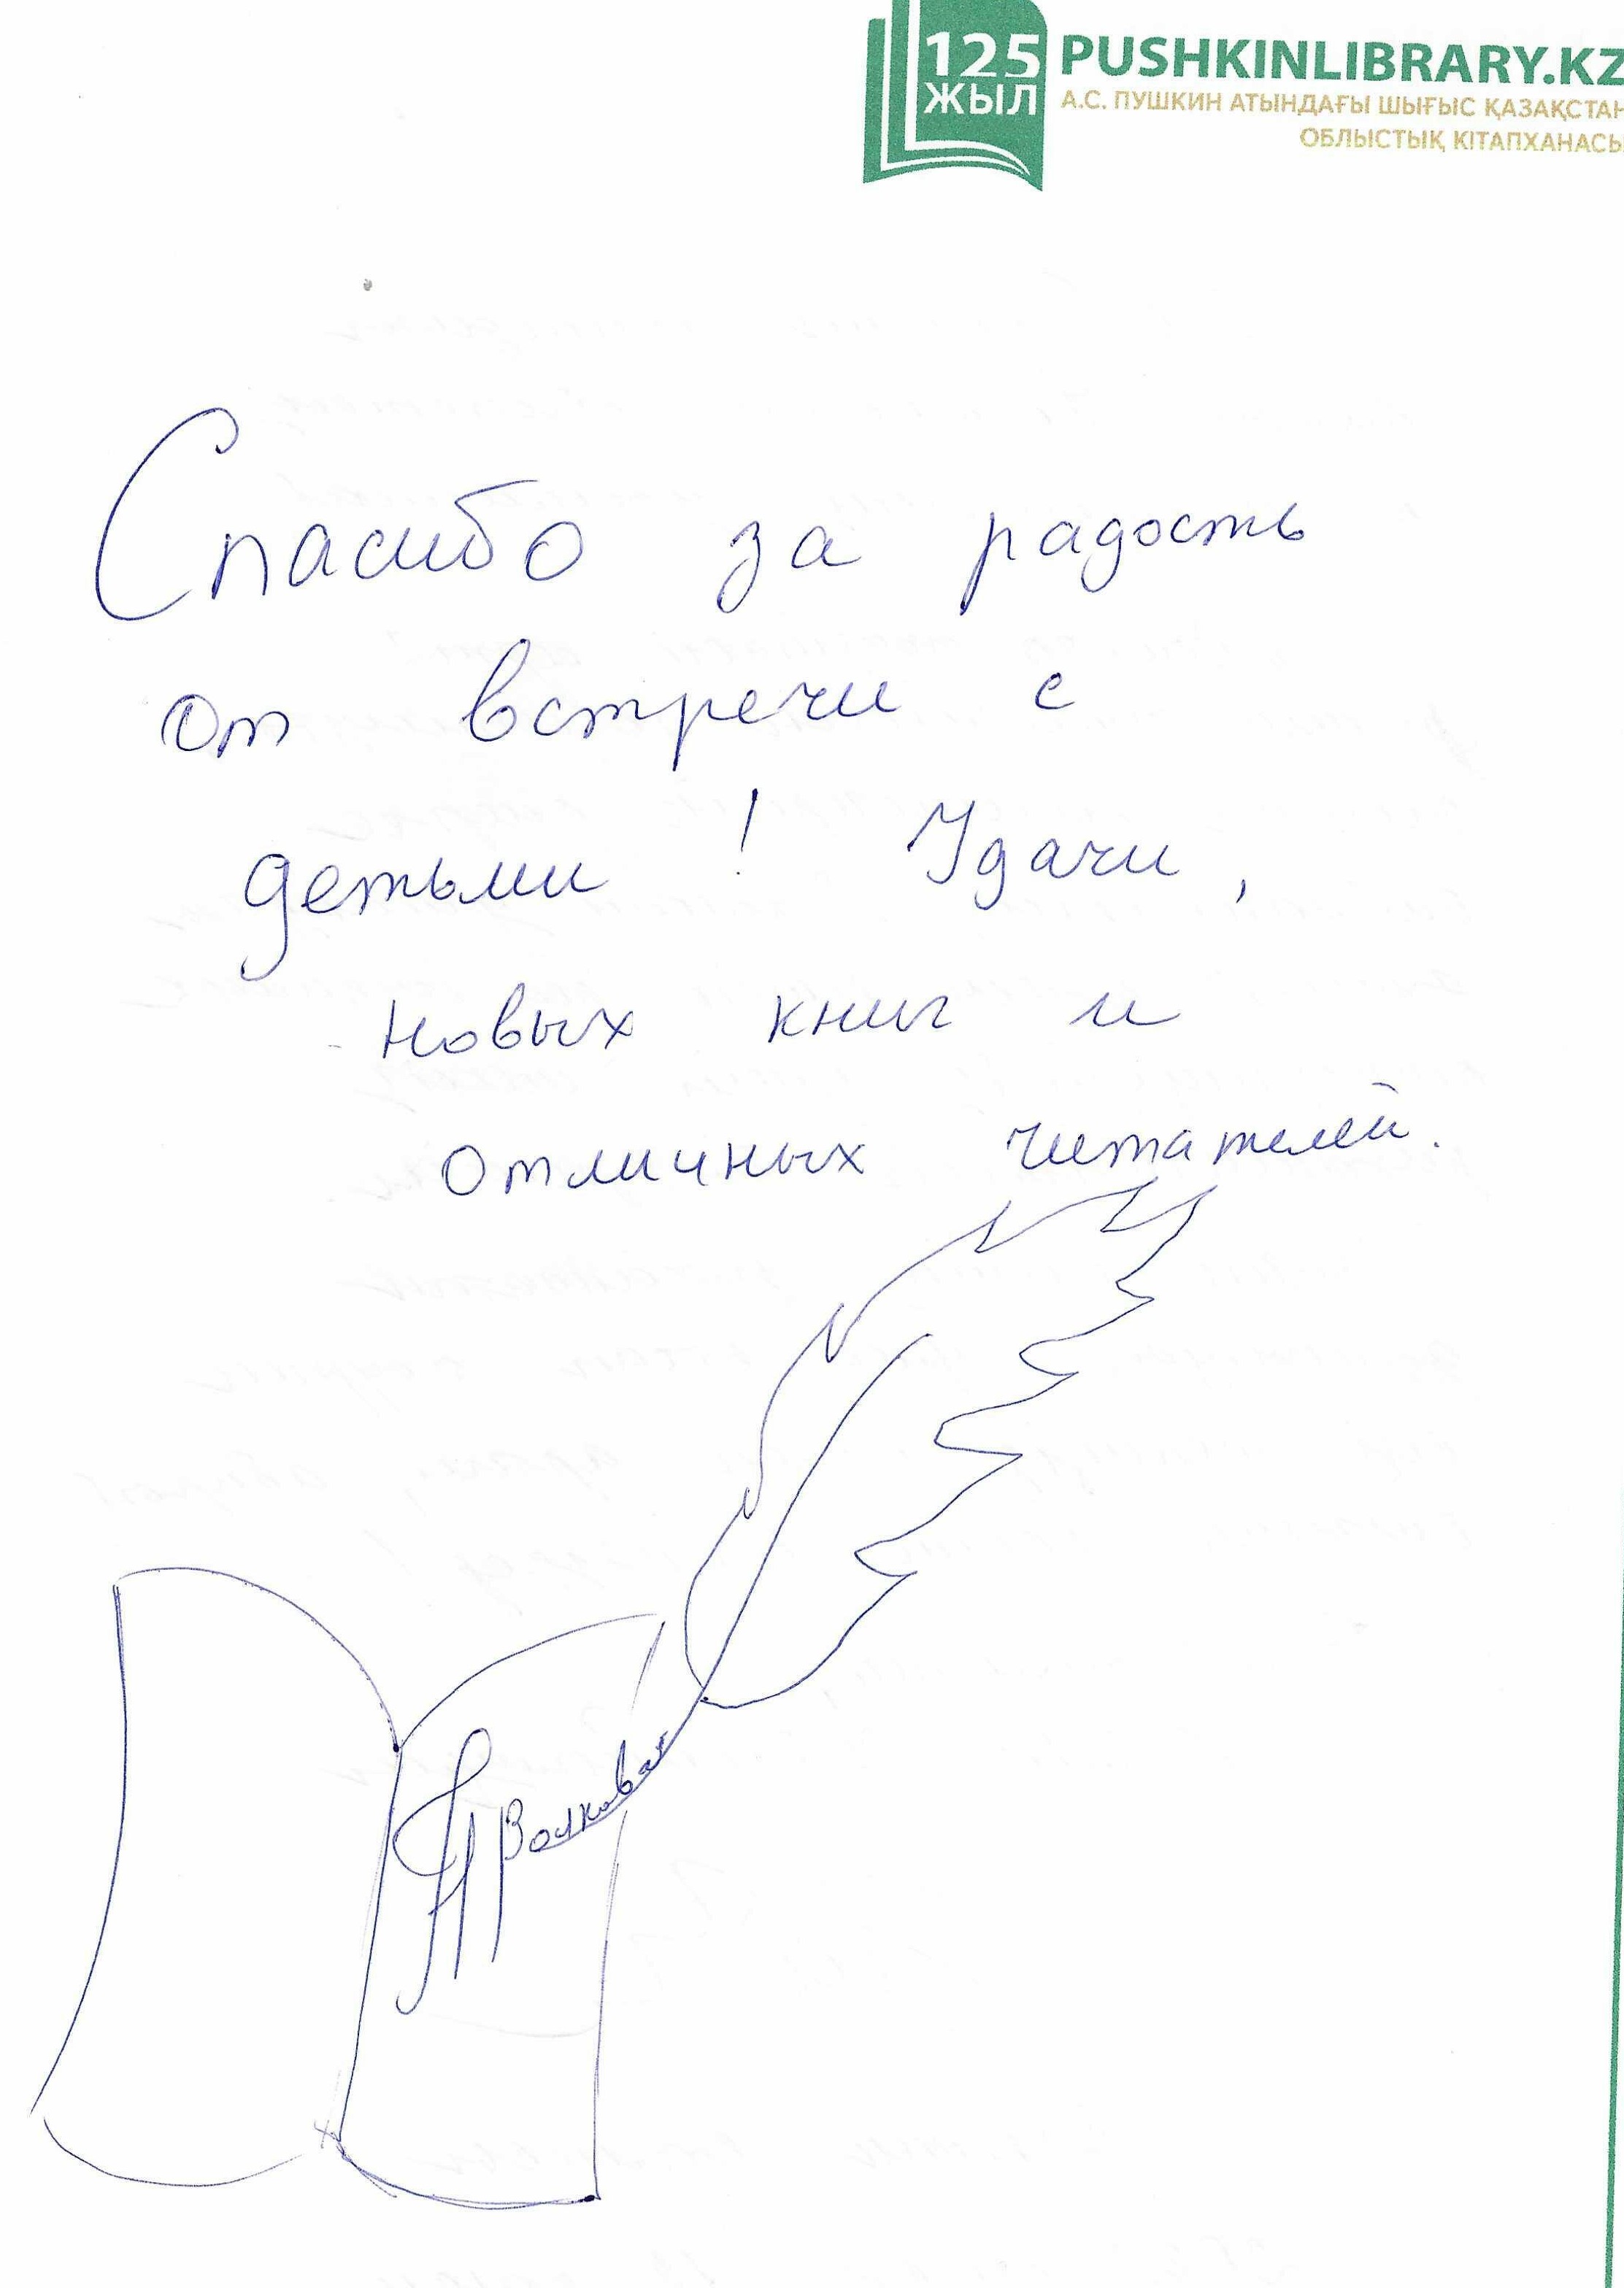 125
ЖЫЛ
PUSHKINLIBRARY.KZ
А.С. ПУШКИН АТЫНДАҒЫ ШЫҒЫС ҚАЗАҚСТАН
ОБЛЫСТЫҚ КІТАПХАНАСЫ
Спасибо за радость
от встречи с
детьми ! Удачи,
новых книг и
отличных читателей.
Волкова